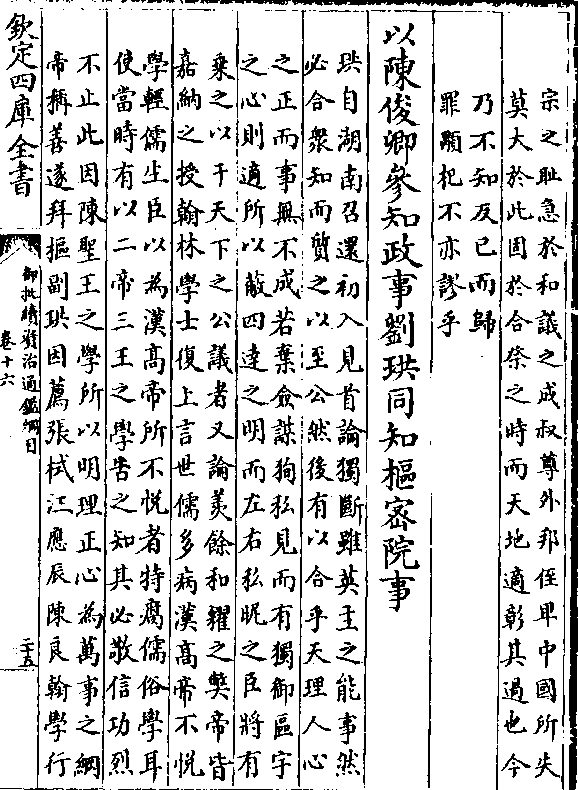 宗之恥急於和議之成叔尊外邦侄卑中國所失
莫大於此固於合祭之時而天地適彰其過也今
乃不知反已而歸
罪顯杞不亦謬乎
以陳俊卿參知政事劉珙同知樞密院事
珙自湖南召還初入見首論獨斷雖英主之能事然
必合衆知而質之以至公然後有以合乎天理人心
之正而事無不成若棄僉謀狥私見而有獨御區宇
之心則適所以蔽四達之明而左右私昵之臣將有
乗之以干天下之公議者又論羡餘和糴之獘帝皆
嘉納之授翰林學士復上言世儒多病漢髙帝不悦
學輕儒生臣以為漢髙帝所不悦者特腐儒俗學耳
使當時有以二帝三王之學告之知其必敬信功烈
不止此因陳聖王之學所以明理正心為萬事之綱
帝稱善遂拜樞副珙因薦張栻汪應辰陳良翰學行
欽定四庫全書
御批續資治通鑑綱目
卷十六
二十五